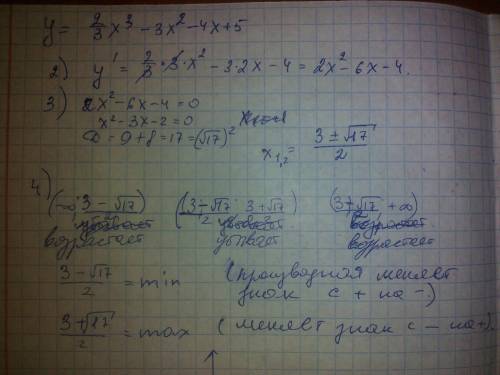 y = 2/3 x³ - 3x² - 4x + 5
2) y' = 2/3 · 3 · x² - 3·2x - 4 = 2x² - 6x - 4.
3) 2x² - 6x - 4 = 0
x² - 3x - 2 = 0
D = 9 + 8 = 17 = (√17)²
x₁,₂ = (3 ± √17)/2
4) (-∞; (3 - √17)/2) ((3 - √17)/2; (3 + √17)/2) ((3 + √17)/2; +∞)
возрастает убывает возрастает
(3 - √17)/2 = min (производная меняет
знак с + на -.)
(3 + √17)/2 = max (меняет знак с - на +).